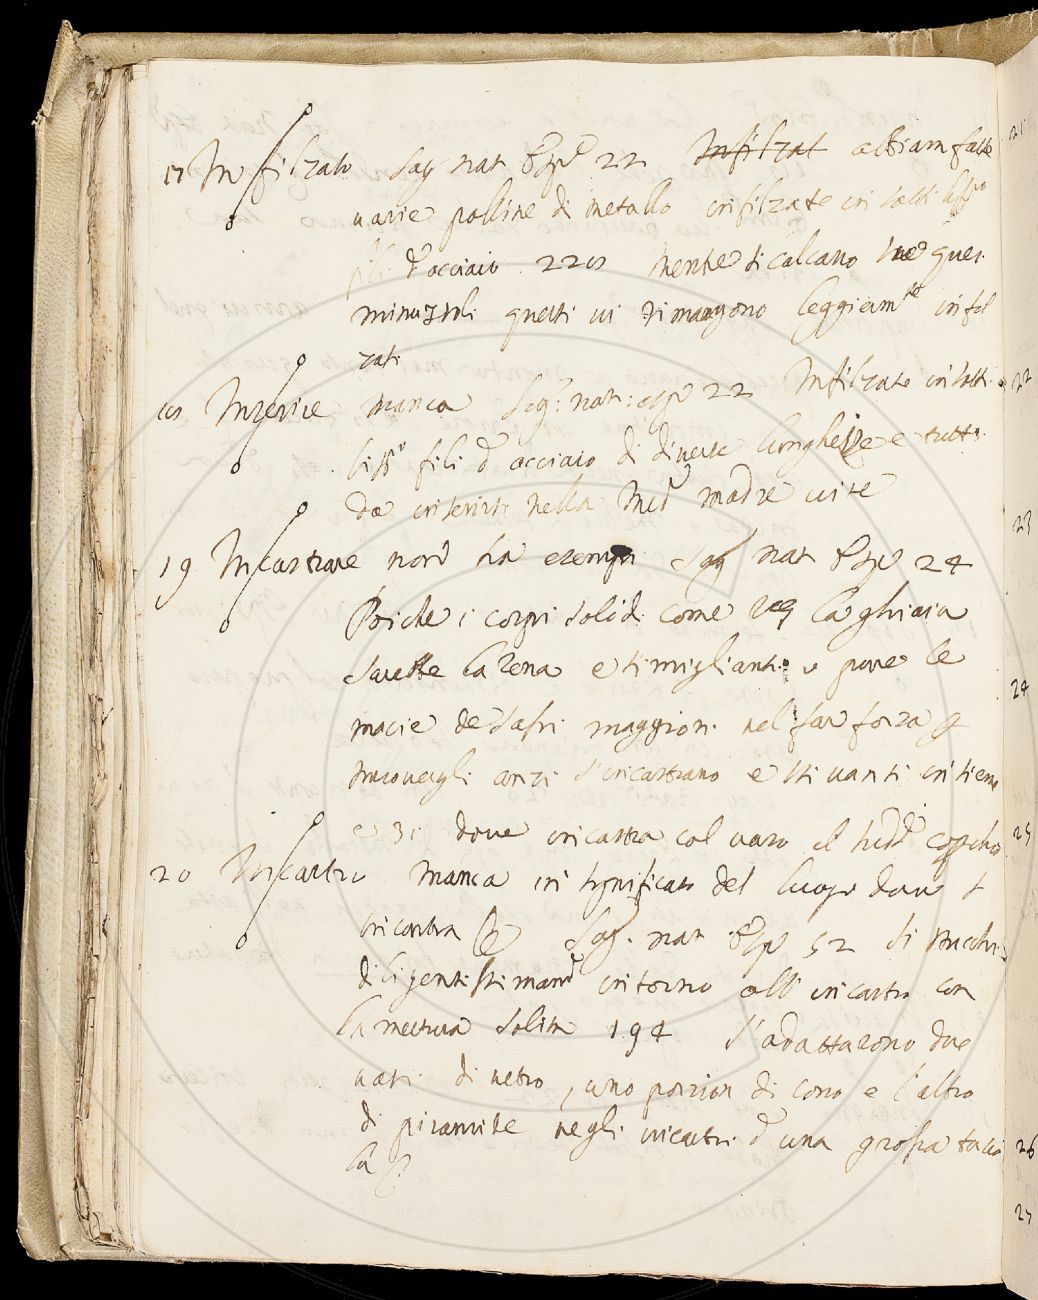 17 Infilzato Sag nat Esp.e 22 Infilzat abbiam fatte
varie palline di metallo infilzate in sotti liss.o
fili d'acciaio 220 Mentre si calcano tra ques.
minuzzoli questi vi rimangono leggierm.te infil
zati
18 Inserire manca Sag: nat: esp 22 Infilzate in sotti.
liss.i fili d'acciaio di diverse lunghezze e tutti
da inserirsi nella med.a madre vite
19 Incastrare non ha esempi Sag nat Esp 24
Poiche i corpi solidi come la ghiaia
la rena e simiglianti o pure le
macie de sassi maggiori nel far forza p
muovergli anzi s'incastrano e stivansi insieme
e 31 dove incastra col vaso il sud.o coperchio
20 Incastro manca in significato del luogo dove s
incastra Sag. nat Esp 52 Si stucchi
diligentissimam.e intorno all'incastro con
la mestura solita 194 S'adattarono due
vasi di vetro, uno porzion di cono e l'altro
di piramide negli incastri d'una grossa tavo
la
21
22
23
24
25
26
27